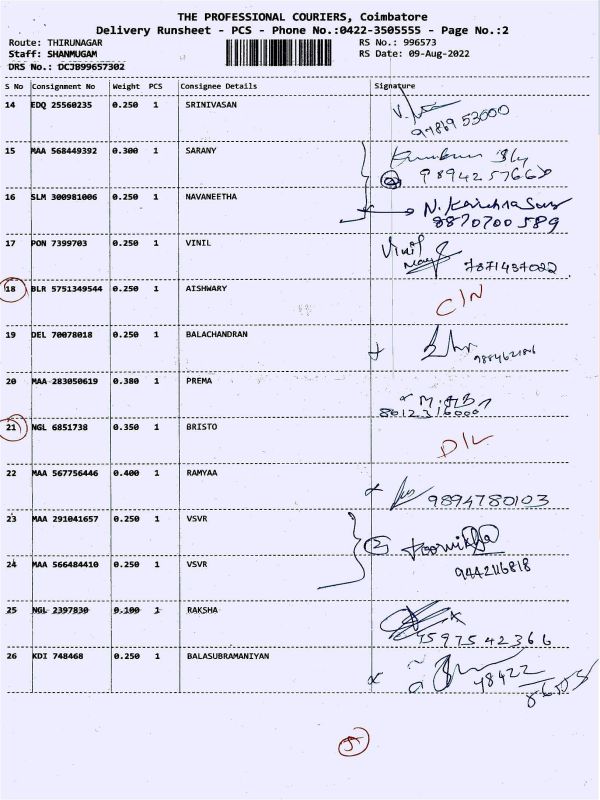 THE PROFESSIONAL COURIERS, Coimbatore
Delivery Runsheet - PCS - Phone No.:0422-3505555 - Page No.:2
Route: THIRUNAGAR RS No.: 996573
Staff: SHANMUGAM RS Date: 09-Aug-2022
DRS No.: DCJB99657302
S No Consignment No Weight PCS Consignee Details Signature
14 EDQ 25560235 0.250 1 SRINIVASAN
15 MAA 568449392 0.300 1 SARANY
16 SLM 300981006 0.250 1 NAVANEETHA
8870700589
17 PON 7399703 0.250 1 VINIL Vinil
7871437022
18 BLR 5751349544 0.250 1 AISHWARY C/N
19 DEL 70078018 0.250 1 BALACHANDRAN
20 MAA 283050619 0.380 1 PREMA
21 NGL 6851738 0.350 1 BRISTO D/L
22 MAA 567756446 0.400 1 RAMYAA
9894780103
23 MAA 291041657 0.250 1 VSVR
24 MAA 566484410 0.250 1 VSVR
25 NGL 2397830 0.100 1 RAKSHA
7597542366
26 KDI 748468 0.250 1 BALASUBRAMANIYAN